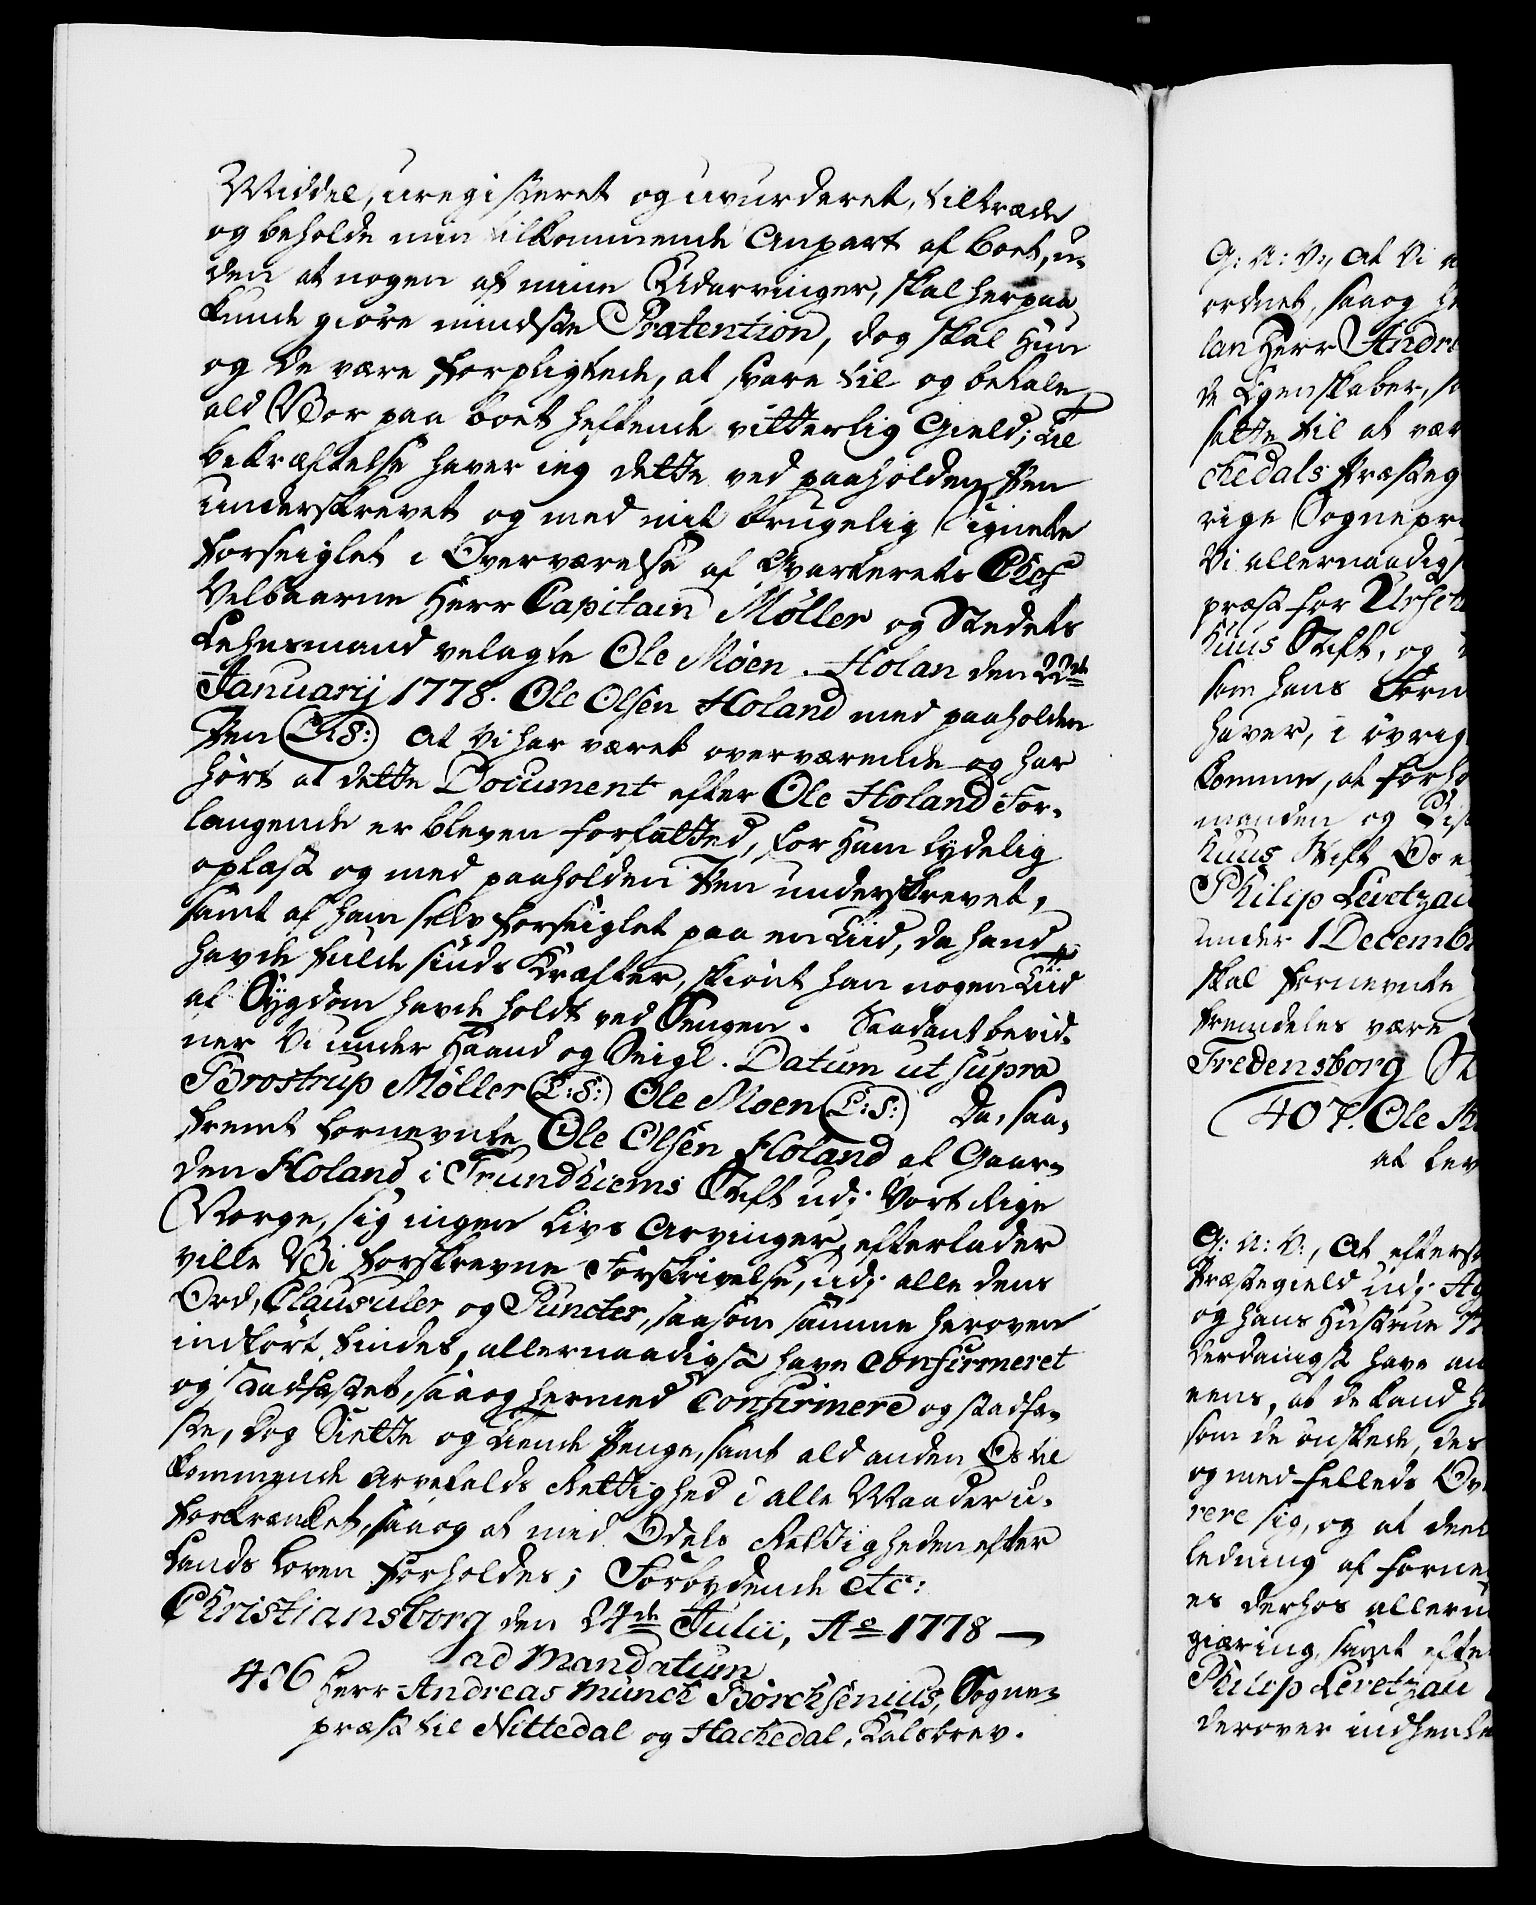 Middel, uregisteret og uvurderet, tiltræde
og beholde min tilkommende Anpart af boet, u-
den at nogen af mine Udarvinger, skal herpaa
kunde giøre mindste Prætention, dog skal hun
og de være forpligtede, at svare til og betale
ald Vor paa boet heftende vitterlig Gield; Til
bekræftelse haver ieg dette ved paaholden Pen
underskrevet og med mit brugelig Signete
forseiglet i Overværelse af Qvarterets Chef
Velbaarne Herr Capitain Møller og Stedets
Lehnsmand velagte Ole Moen. Holan den 22de
Januarij 1778. Ole Olsen Holand med paaholden
Pen (L:S:) At Vi har været overværende og har
hørt at dette Document efter Ole Holand For-
langende er bleven forfatted, for ham tydelig
oplæst og med paaholden Pen underskrevet,
samt af ham selv forseiglet paa en Tiid, da hand
havde fulde sinds Kræfter, skiønt han nogen Tiid
af Sygdom havde holdt ved Sengen. Saadant bevid-
ner Vi under Haand og Seigl. Datum ut supra
Brostrup Møller (L:S:) Ole Moen (L:S:) Da, saa-
fremt fornevnte Ole Olsen Holand af Gaar-
den Holand i Trundhiems Stift udj Vort Rige
Norge, sig ingen Livs Arvinger, efterlader
ville Vi forskrevne Forskrivelse, udj alle dens
Ord, Clausuler og Puncter, saasom samme heroven
indført findes, allernaadigst have confirmeret
og stadfæstet, saa og hermed confirmere og stadfæ-
ste, dog Siette og Tiende Penge, samt ald anden Os til
kommende Arvefalds Rettighed i alle Maader u-
forkrænket, saa og at med Odels Rettigheden efter
Lands Loven forholdes; Forbydende etc:
Christiansborg den 24de Julii, Ao 1778 —
ad Mandatum
406 Herr Andreas Munch Borchsenius, Sogne-
præst til Nittedal og Hachedal, Kalsbrev.
G: A: V:, At Vi
ordnet, saa og
lan Herr Andre
de Egenskaber, 
sette til at vær
chedals Præsteg
rige Sognepr
Vi allernaadigs
præst for
huus Stift, og
som hans Form
haver, i øvrig
komme, at forho
manden og Bis
huus Stift Os
Philip Levetzau
under 1 Decemb
skal fornevnte
fremdeles være
Fredensborg
407. Ole
at lev
G: A: V:, At efters
Præstegield udj A
og hans Hustrue
derdanigst have an
eens, at de kand
som de ønskede, des
og med felleds Ov
rere sig, og at den
ledning af forne
es derhos allern
giæring, samt efte
Philip Levetzau
derover indhente